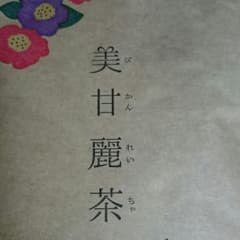 美甘麗茶
びかんれいちゃ